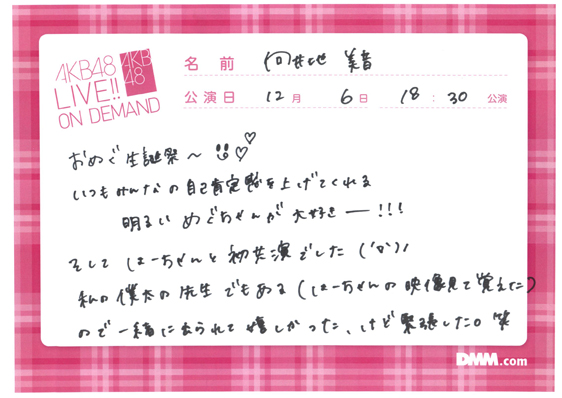 AKB48
LIVE!!
ON DEMAND
AKB
48
名前 向井地 美音
公演日 12月 6日 18:30 公演
おめぐ生誕祭〜
いつもみんなの自己肯定感を上げてくれる
明るいめぐちゃんが大好きー!!!
そして はーちゃんと初共演でした('ω')ノ
私の僕太の先生でもある(はーちゃんの映像見て覚えた)
ので一緒に出られて嬉しかった、けど緊張した。笑
DMM.com